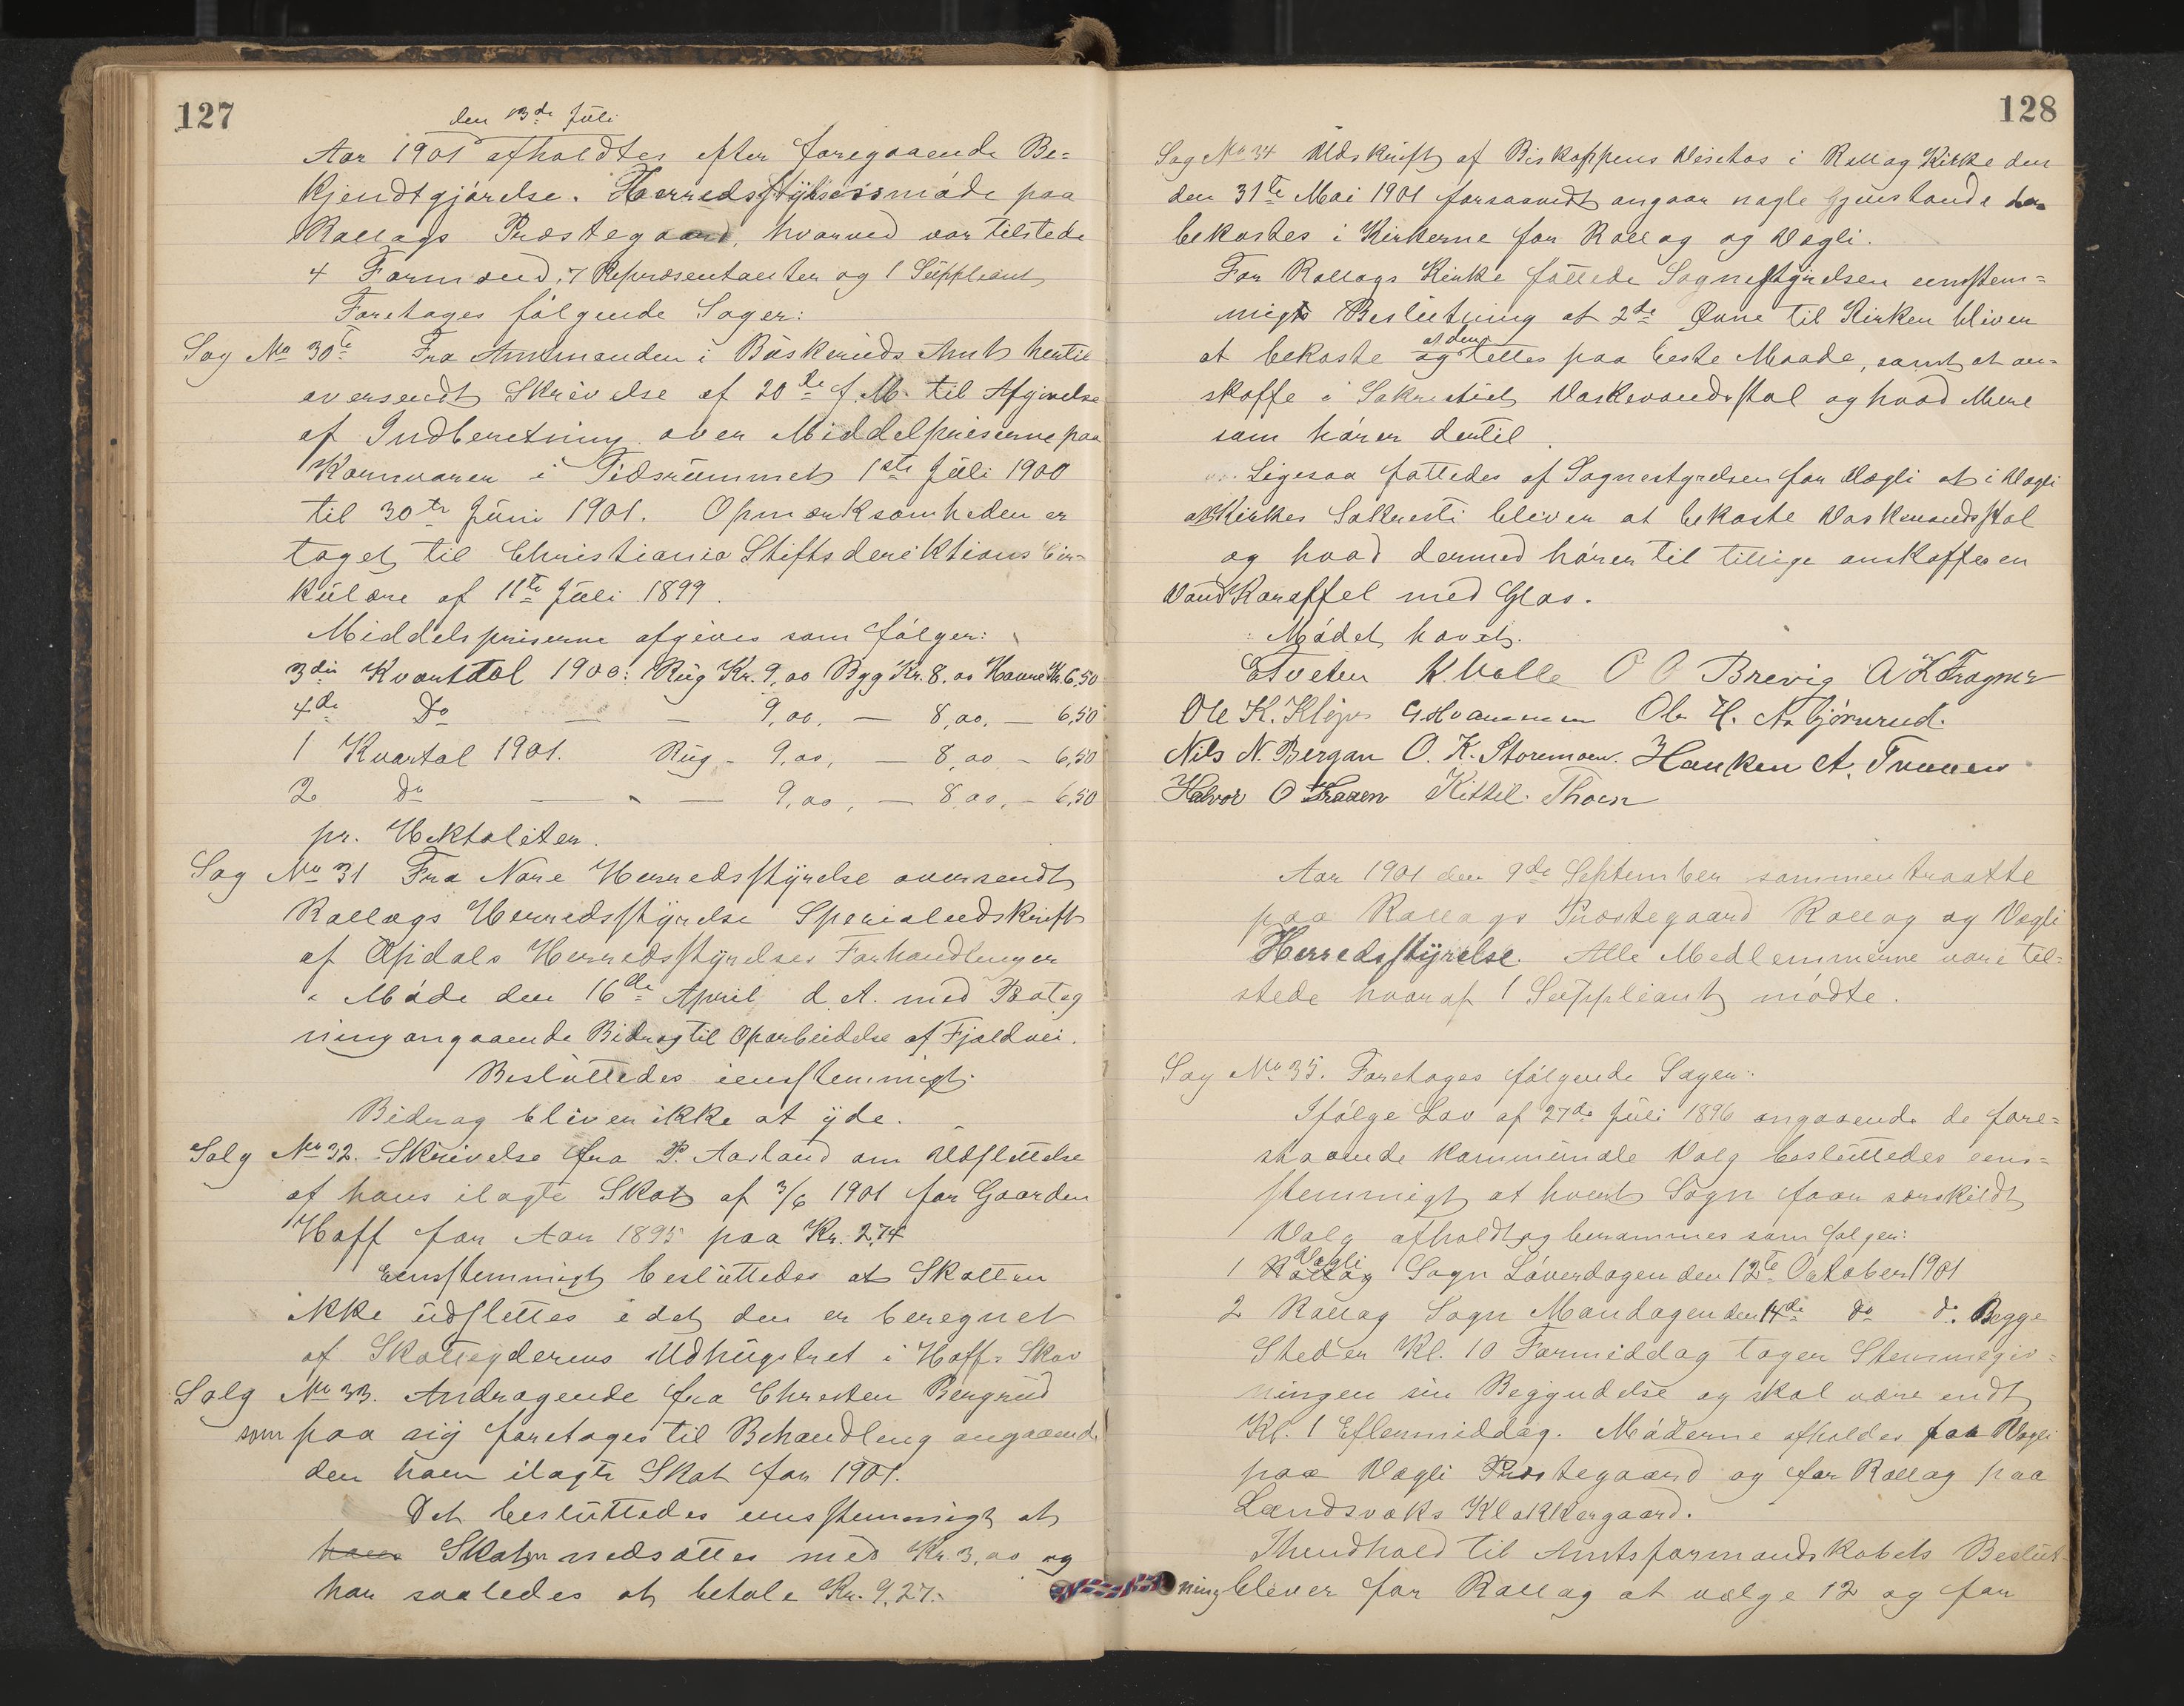 127
den 13de Juli
Aar 1901 afholdtes efter foregaaende Be=
kjendtgjørelse. Herredsstyrelsesmøde paa
Rollags Præstegaard, hvorved var tilstede
4 Formænd, 7 Repræsentanter og 1 Suppliant
Foretages følgende Sager:
Sag No 30te Fra Amtmanden i Buskeruds Amt hertil
oversendt Skrivelse af 20de f. M. til Afgivelse
af Indberetning over Middelpriserne paa
Kornvarer i Tidsrummet 1ste Juli 1900
til 30te Juni 1901. Opmærksomheden er
taget til Christiania Stiftsdirektions Cir=
kulære af 11te Juli 1899.
Middelspriserne afgives som følger:
3die Kvartal 1900: Rug Kr. 9,00 Byg Kr. 8,00 Havre Kr. 6,50
4de Do — — 9,00, — 8,00, — 6,50
1 Kvartal 1901. Rug – 9,00, — 8,00 – 6,50
2 Do — – — 9,00, — 8,00, – 6,50
pr. Hektoliter.
Sag No 31 Fra Nore Herredsstyrelse oversendt
Rollags Herredsstyrelse Specialudskrift
af Opdals Herredsstyrelses Forhandlinger
i Møde den 16de April d. A. med Poteg
ning angaaende Bidrag til Oparbeidelse af Fjeldvei.
Besluttedes eensstemmigt:
Bidrag bliver ikke at yde.
Salg No 32. Skrivelse fra P. Aasland om Udslettelse
af hans ilagte Skat af 3/6 1901 for Gaarden
Hoff for Aar 1895 paa Kr. 2,74
Eensstemmigt besluttedes at Skatten
ikke udslettes idet den er beregnet
af Skatteyderens Udhugstret i Hoff= Skov
Salg No 33. Andragende fra Christen Bergrud
som paa sig foretages til Behandling angaaende
den ham ilagte Skat for 1901.
Det besluttedes eensstemmigt at
hans Skatten nedsættes med Kr. 3,00 og
har saaledes at betale Kr. 9,27.
128
Sag No 34 Udskrift af Biskoppens Visitas i Rollag Kirke den
den 31te Mai 1901 forsaavidt angaar nogle Gjenstande
bekostes i Kirkerne for Rollag og Vegli.
For Rollags Kirke fattede Sognestyrelsen eensstem=
migt Beslutning at 2de Ovne til Kirken bliver
at bekoste og at dem tettes paa beste Maade, samt at an=
skaffe i Sakristiet Vaskevandsstol og hvad Mere
som hører dertil.
Ligesaa fattedes af Sognestyrelsen for Vegli at i Vegli
Kirkes Sakresti bliver at bekoste Vaskevandsstol
og hvad dermed hører til tillige anskaffes en
Vandkaraffel med Glas.
Mødet hævet.
E Tveten K. Valle O O Brevig A K Fragner
Ole K. Kløper G Hvammen Ole H. Aabjørnrud.
Nils N. Bergan O. K. Storemoen. Haaken A. Traaen
Halvor O Traaen Kittil Thoen
Aar 1901 den 9de September sammentraatte
paa Rollags Præstegaard Rollag og Vegli
Herredsstyrelse. Alle Medlemmerne vare til=
stede hvoraf 1 Suppliant mødte.
Sag No 35. Foretages følgende Sager:
Ifølge Lov af 27de Juli 1896 angaaende de fore=
staaende kommunale Valg besluttedes eens=
stemmigt at hvert Sogn faar særskildt
Valg afholdt og berammes som følger:
1 Rollag Vegli Sogn Løverdagen den 12te Oktober 1901
2 Rollag Sogn Mandagen den 14de do do. Begge
Steder Kl. 10 Formiddag tager Stemmegiv=
ningen sin Begyndelse og skal være endt
Kl. 1 Eftermiddag. Møderne afholdes paa Vegli
paa Vegli Præstegaard og for Rollag paa
Landsvæks Klokkergaard.
I henhold til Amtsformandskabets Beslut=
ning bliver for Rollag at vælge 12 og for